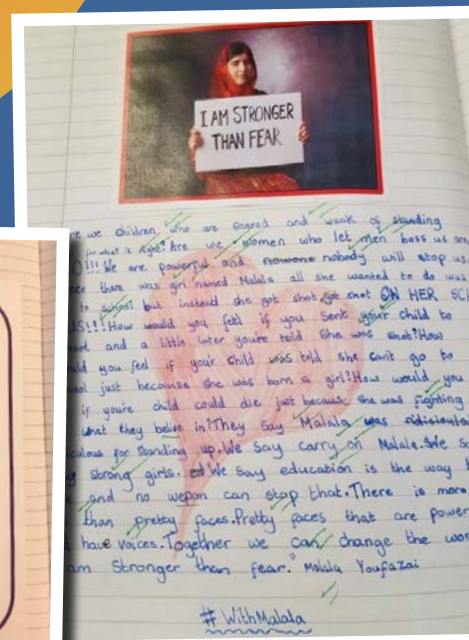 I AM STRONGER
THAN FEAR
we children who are scared and weak of standing
for what is right? Are we women who let men boss us
!!! We are powerful and nowone nobody will stop us.
there was girl named Malala all she wanted to do was
to school but instead she got shot, got shot ON HER
!!! How would you feel if you sent your child to
and a little later youre told she was shot? How
you feel if your child was told she cant go to
just because she was born a girl? How would you
if you're child could die just because she was fighting
what they belive in? They say Malala was ridiculous
for standing up. We say carry on Malala. We
strong girls. We say education is the way
and no wepon can stop that. There is more
than pretty faces. Pretty faces that are
have voices. Together we can change the
am Stronger than fear." Malala Youfazai
#WithMalala